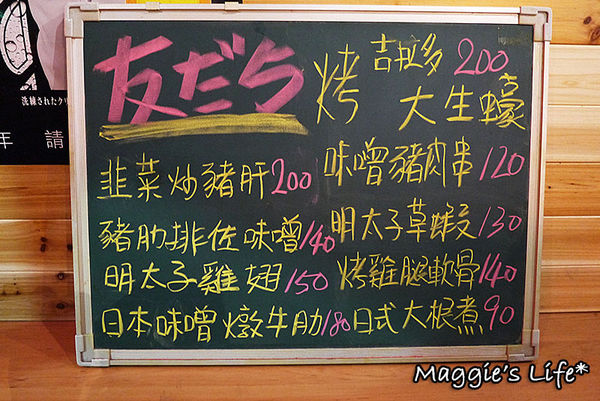 友だち
烤 吉拉多 大生蠔 200
韭菜炒豬肝 200
味噌豬肉串 120
豬肋排佐味噌 140
明太子草蝦 130
明太子雞翅 150
烤雞腿軟骨 140
日本味噌燉牛肋 180
日式大根煮 90
洗練されたクリ
年 請
Maggie's Life*